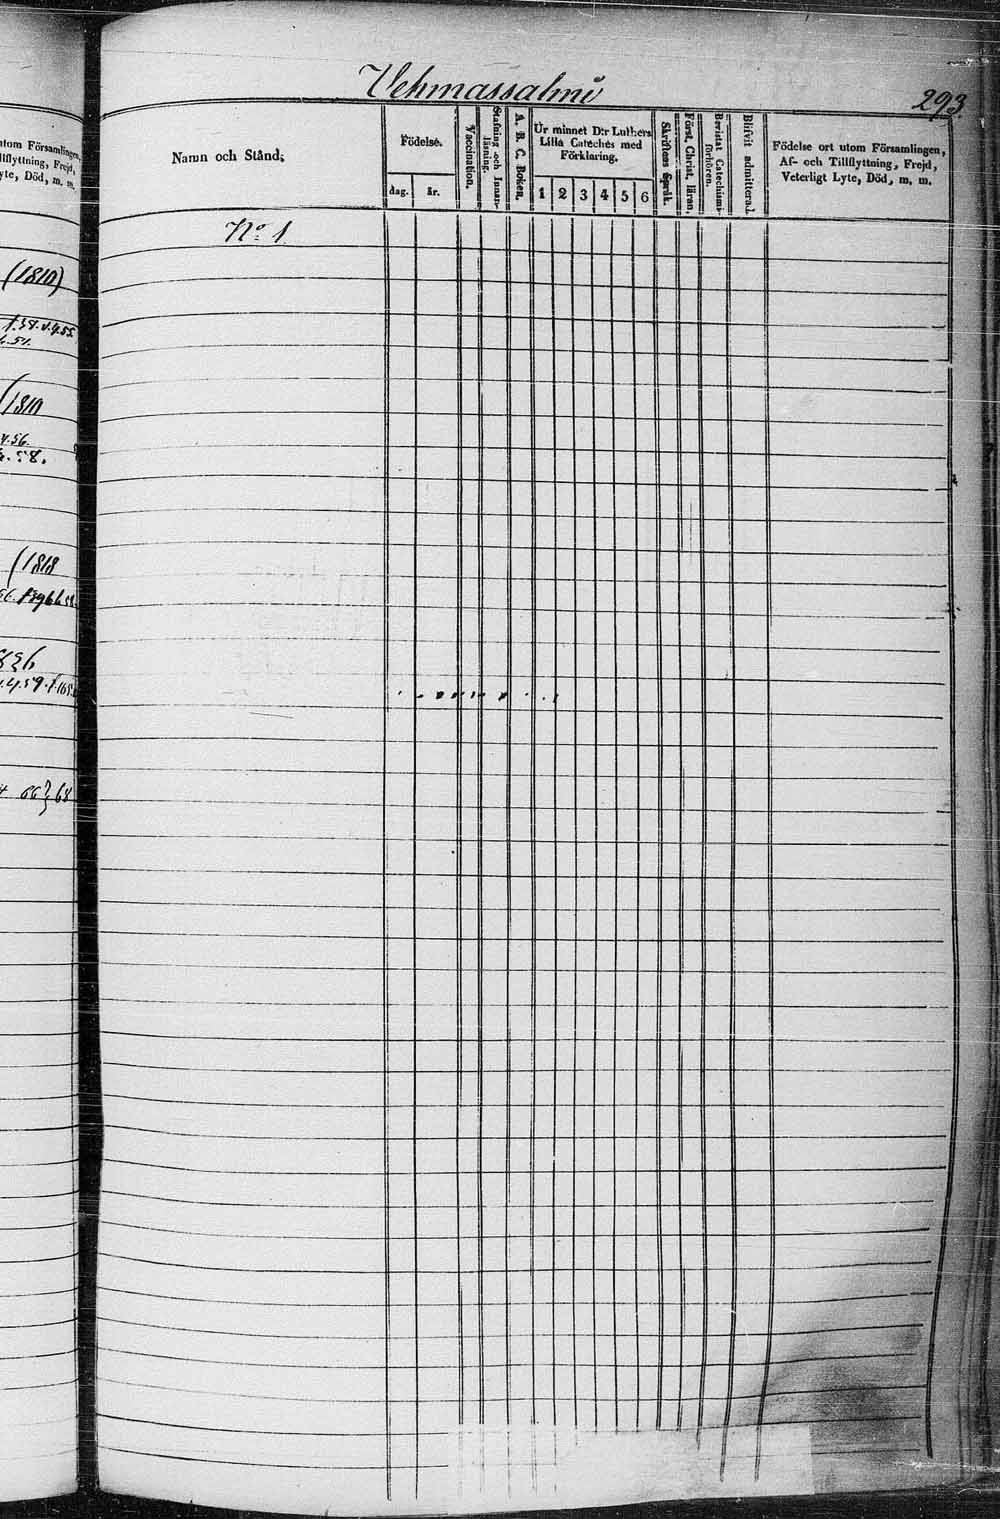 utom Församlingen,
Tillflyttning, Frejd,
Lyte, Död, m. m.
(1810)
6.51.
(1810
4.56.
58.
(1818
Vehmassalmi
293.
Namn och Stånd.
Födelse.
dag.
år.
Vaccination.
Stafning och Innan-
läsning.
A. B. C. Boken.
Ur minnet D:r Luthers
Lilla Cateches med
Förklaring.
1 2 3 4 5 6
Skriftens Språk.
Först. Christ. läran.
Bevistat Catechismi-
förhören.
Blifvit admitterad.
Födelse ort utom Församlingen,
Af- och Tillflyttning, Frejd,
Veterligt Lyte, Död, m. m.
No 1